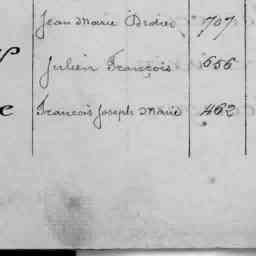 Jean Marie Brodier 707
Julien François 656
François Joseph Marie 462